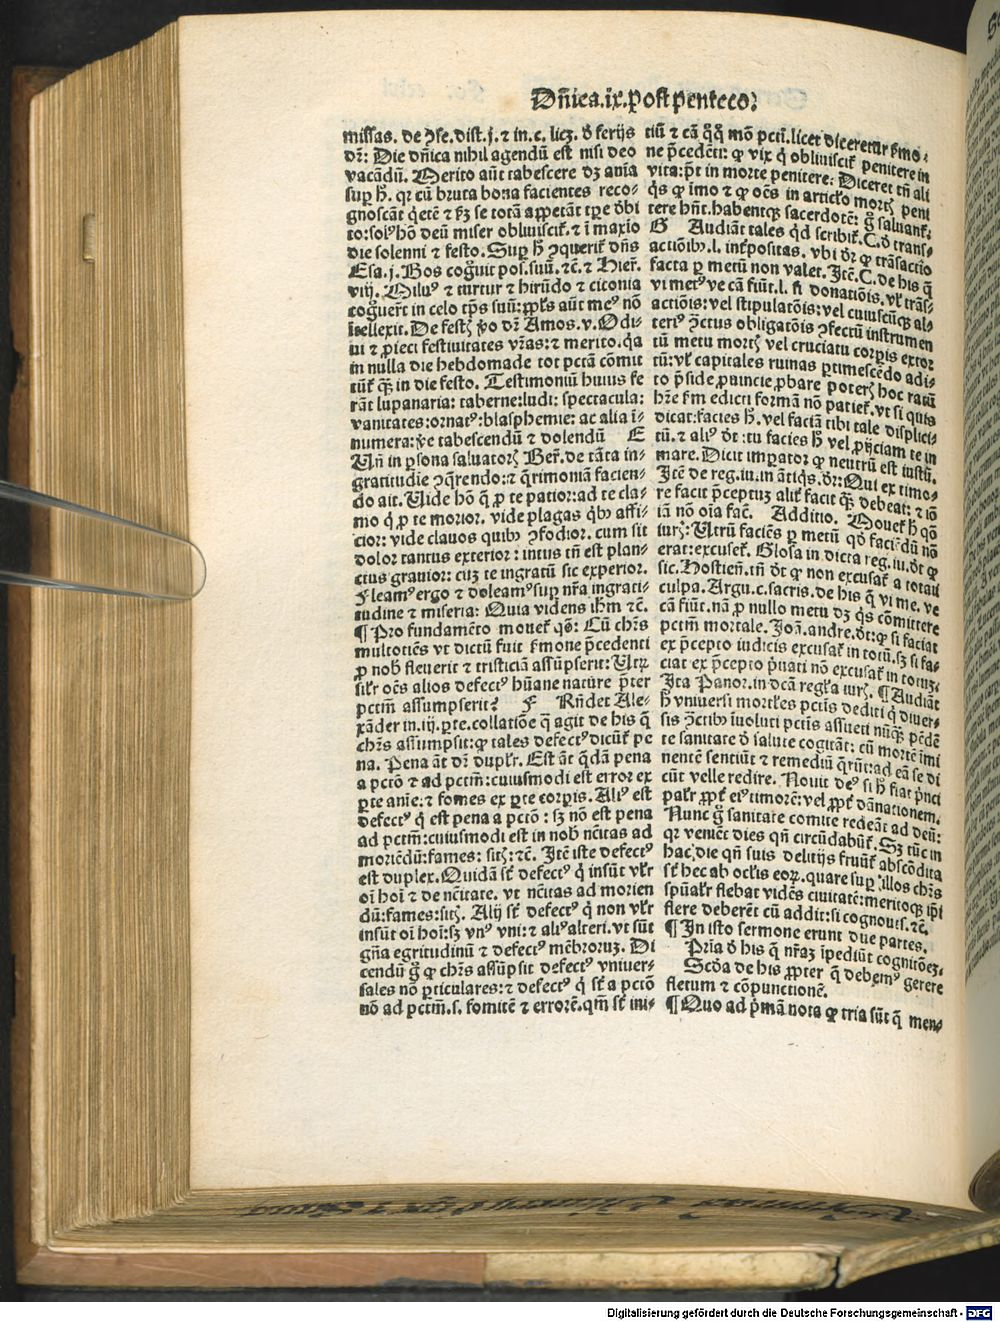 Dn̄ica.ix.post penteco?
missas. de ꝯse.dist.j.⁊ in.c. licꝫ. ð ferijs
dr̄: Die dn̄ica nihil agendū est nisi deo
vacādū. Merito aūt tabescere dꝫ aīa
suꝑ h̄. qr cū bruta bona facientes reco-
gnoscāt
die solenni ⁊ festo. Suꝑ h̄ ꝯquerit᷑ dn̄s
Esa.j. Bos cogͦuit pos.suū.⁊c̄.⁊ Hier̄.
viij. Miluꝰ ⁊ turtur ⁊ hirūdo ⁊ ciconia
cogͦuerūt in celo tp̄s suū: ppl̄s aūt meꝰ nō
ītellexit. De festꝭ v̄o dr̄ Amos.v. Odi-
ui ⁊ ꝓieci festiuitates vr̄as:⁊ merito.qa
in nulla die hebdomade tot pctā cōmit
tūt᷑ qꝫ in die festo. Testimoniū huius fe
rāt lupanaria: taberne:ludi: spectacula:
vanitates:ornatꝰ:blasphemie: ac alia ī-
numera: v̄e tabescendū ⁊ dolendū E
Un̄ in ꝑsona saluatorꝭ Ber̄. de tāta in-
gratitudīe ꝯq̄rendo:⁊ q̄rimoniā facien-
do ait. Uide hō q̄ ꝓ te patior:ad te cla-
mo q̄ ꝓ te morior. vide plagas qͥbꝰ affi-
cior: vide clauos quibꝰ ꝯfodior. cum sit
dolor tantus exterior: intus tn̄ est plan-
ctus grauior: cuꝫ te ingratū sic experior.
Fleamꝰ ergo ⁊ doleamꝰ suꝑ nr̄a ingrati-
tudine ⁊ miseria: Quia videns ih̄m ⁊c̄.
¶ Pro fundamēto mouet᷑ qō: Cū chr̄s
multotiēs vt dictū fuit ẜmone p̄cedenti
ꝓ nob̄ fleuerit ⁊ tristiciā assūpserit: Utꝝ
silr̄ oēs alios defectꝰ hūane nature p̄ter
pctm̄ assumpserit? F Rn̄det Ale-
xāder in.iij.ꝑte.collatiōe q̄ agit de his q̄
chr̄s assumpsit:ꝙ tales defectꝰ dicūt᷑ pe
na. Pena āt dr̄ duplr̄. Est āt qͥdā pena
a pctō ⁊ ad pctm̄:cuiusmodi est error ex
ꝑte anīe:⁊ fomes ex ꝑte corꝑis. Aliꝰ est
defectꝰ qͥ est pena a pctō : sꝫ nō est pena
ad pctm̄:cuiusmodi est in nob̄ nc̄itas ad
moriēdū:fames: sitꝭ:⁊c̄. Itē iste defectꝰ
est duplex. Quidā st̄ defectꝰ qͥ insūt vlr̄
oī hoī ⁊ de nc̄itate. vt nc̄itas ad morien
dū:fames:sitꝭ. Alij st̄ defectꝰ qͥ non vlr̄
insūt oī hoī:sꝫ vnꝰ vni:⁊ aliꝰ alteri.vt sūt
gn̄a egritudinū ⁊ defectꝰ mēbroruꝫ. Di
cendū gͦ ꝙ chr̄s assūpsit defectꝰ vniuer-
sales nō ꝑticulares:⁊ defectꝰ qͥ st̄ a pctō
nō ad pctm̄.s. fomitē ⁊ errorē.qm̄ st̄ ini-
tiū ⁊ cā
ne p̄cedēti: ꝙ vix qͥ obliuiscit᷑ penitere in
vita:p̄t in morte penitere: Diceret tn̄ ali
qͥs ꝙ imo ⁊ ꝙ oēs in articl̄o mortꝭ peni
tere hn̄t.habentqꝫ sacerdotē: gͦ saluant᷑.
G Audiāt tales qͥd scribit᷑. C. ð trans-
actiōibꝰ.l. int̄positas. vbi dr̄ ꝙ trāsactio
facta ꝑ metū non valet. Itē.C. de his q̄
vi metꝰve cā fiūt.l. si donatiōis. vl̄ trās-
actiōis: vel stipulatōis: vel cuiuscūqꝫ al-
teriꝰ ꝯctus obligatōis ꝯfectū instrumen
tū metu mortꝭ vel cruciatu corꝑis extor
tū: vl̄ capitales ruinas ꝑtimescēdo adi-
to p̄side ꝓuincie ꝓbare poterꝭ hoc ratū
hr̄e fm edicti formā nō patiet᷑.vt si quis
dicat:facies h̄. vel faciā tibi tale displici-
tū.⁊ aliꝰ dt̄: tu facies h̄ vel ꝓijciam te in
mare. Dicit imꝑator ꝙ neutrū est iustū.
Itē de reg.iu.in ātiqͥs. dr̄: Qui ex timo-
re facit p̄ceptuꝫ alit᷑ facit qꝫ debeat: ⁊ iō
iā nō oīa fac̄. Additio. Mouet᷑ h̄ qō
iurꝭ: Utrū faciēs ꝑ metū qō faciēdū nō
erat:excuset᷑. Glosa in dicta reg.iu.dt̄ ꝙ
sic. Hostien̄.tn̄ dt̄ ꝙ non excusat᷑ a totali
culpa. Argu.c.sacris.de his q̄ vi me. ve
cā fiūt.nā ꝓ nullo metu dꝫ qͥs cōmittere
pctm̄ mortale. Joā.andre.dt̄:ꝙ si faciat
ex p̄cepto iudicis excusat᷑ in totū.sꝫ si fa-
ciat ex p̄cepto p̄uati nō excusat᷑ in totuꝫ.
Ita Panor.in dcā regl̄a iurꝭ. ¶ Audiāt
h̄ vniuersi mortl̄es pctis dediti qͥ diuer-
sis ꝯctibꝰ īuoluti pctis assueti nūqꝫ pēdē
te sanitate ð salute cogitāt: cū mortē imi
nentē sentiūt ⁊ remediū q̄rūt:ad eā se di
cūt velle redire. Nouit deꝰ si h̄ fiat
Nunc gͦ sanitate comite redeāt ad deū:
qr veniēt dies qn̄ circūdabūt᷑. Sꝫ tūc in
hac die qn̄ suis delitijs fruūt᷑ abscōdita
st̄ hec ab ocl̄is eoꝝ. quare suꝑ illos chr̄s
spūalr̄ flebat vidēs ciuitatē:meritoqꝫ ip̄i
flere deberēt cū addit:si cognouis.⁊c̄.
¶ In isto sermone erunt due partes.
Pria ð his q̄ nr̄aꝫ īpediūt cognitōeꝫ.
Scd̄a de his ꝓpter q̄ debemꝰ gerere
fletum ⁊ cōpunctionē.
¶ Quo ad p̄mā nota ꝙ tria sūt q̄ men-
Digitalisierung gefördert durch die Deutsche Forschungsgemeinschaft - DFG